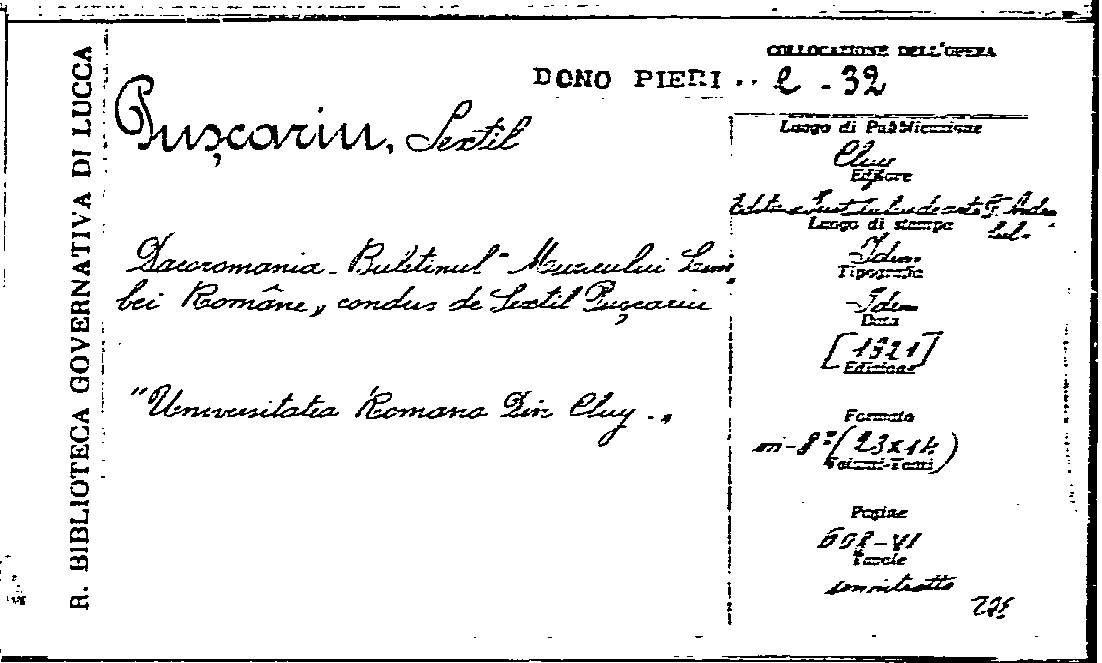 R. BIBLIOTECA GOVERNATIVA DI LUCCA
COLLOCAZIONE DELL'OPERA
DONO PIERI .. e - 32
Puşcariu, Sextil
Dacoromania - Buletinul Muzeului Lim
bei Române„ condus de Sextil Puşcariu
"Universitatea Romana Din Cluy -„
Luogo di Pubblicazione
Cluy
Editore
Luogo di stampa
Idem
Tipografia
Idem
Data
[1921]
Edizione
Formato
in-8° (23x14)
Volumi-Tomi
Pagine
608-VI
Tavole